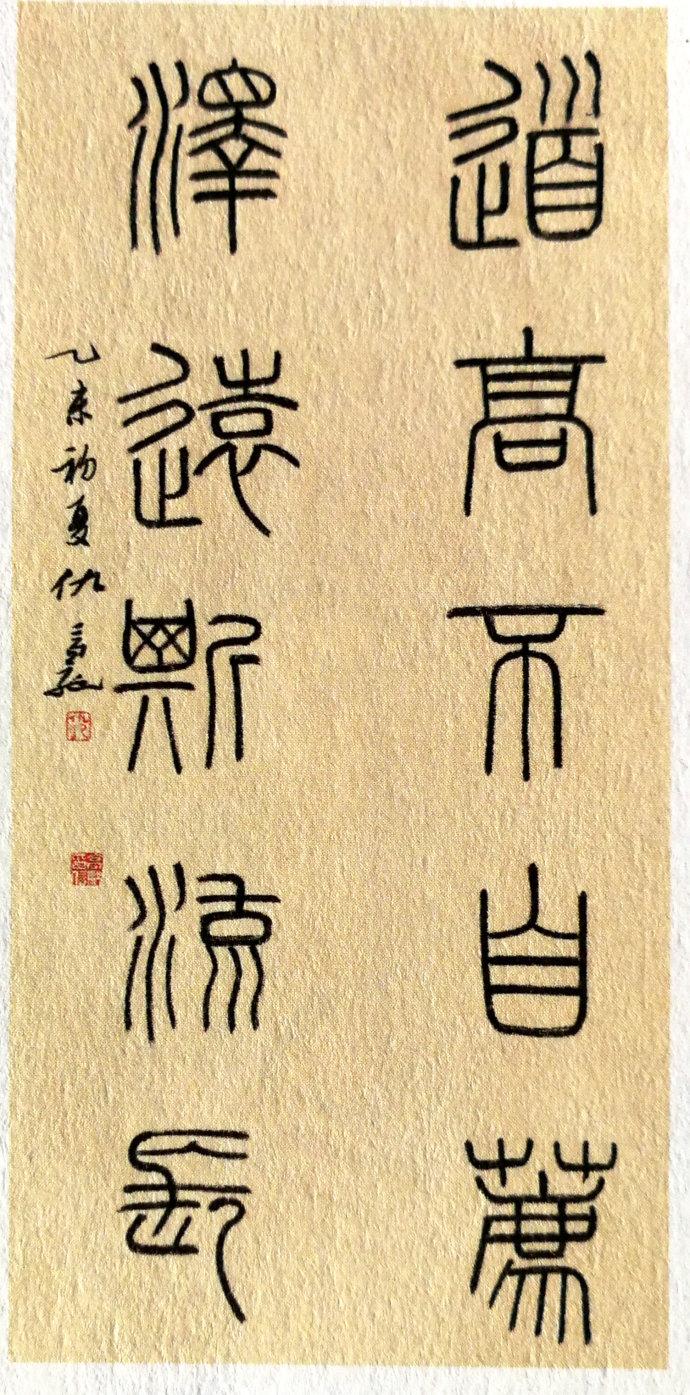 道高不自薦
澤遠斯流長
乙未初夏仇高驰